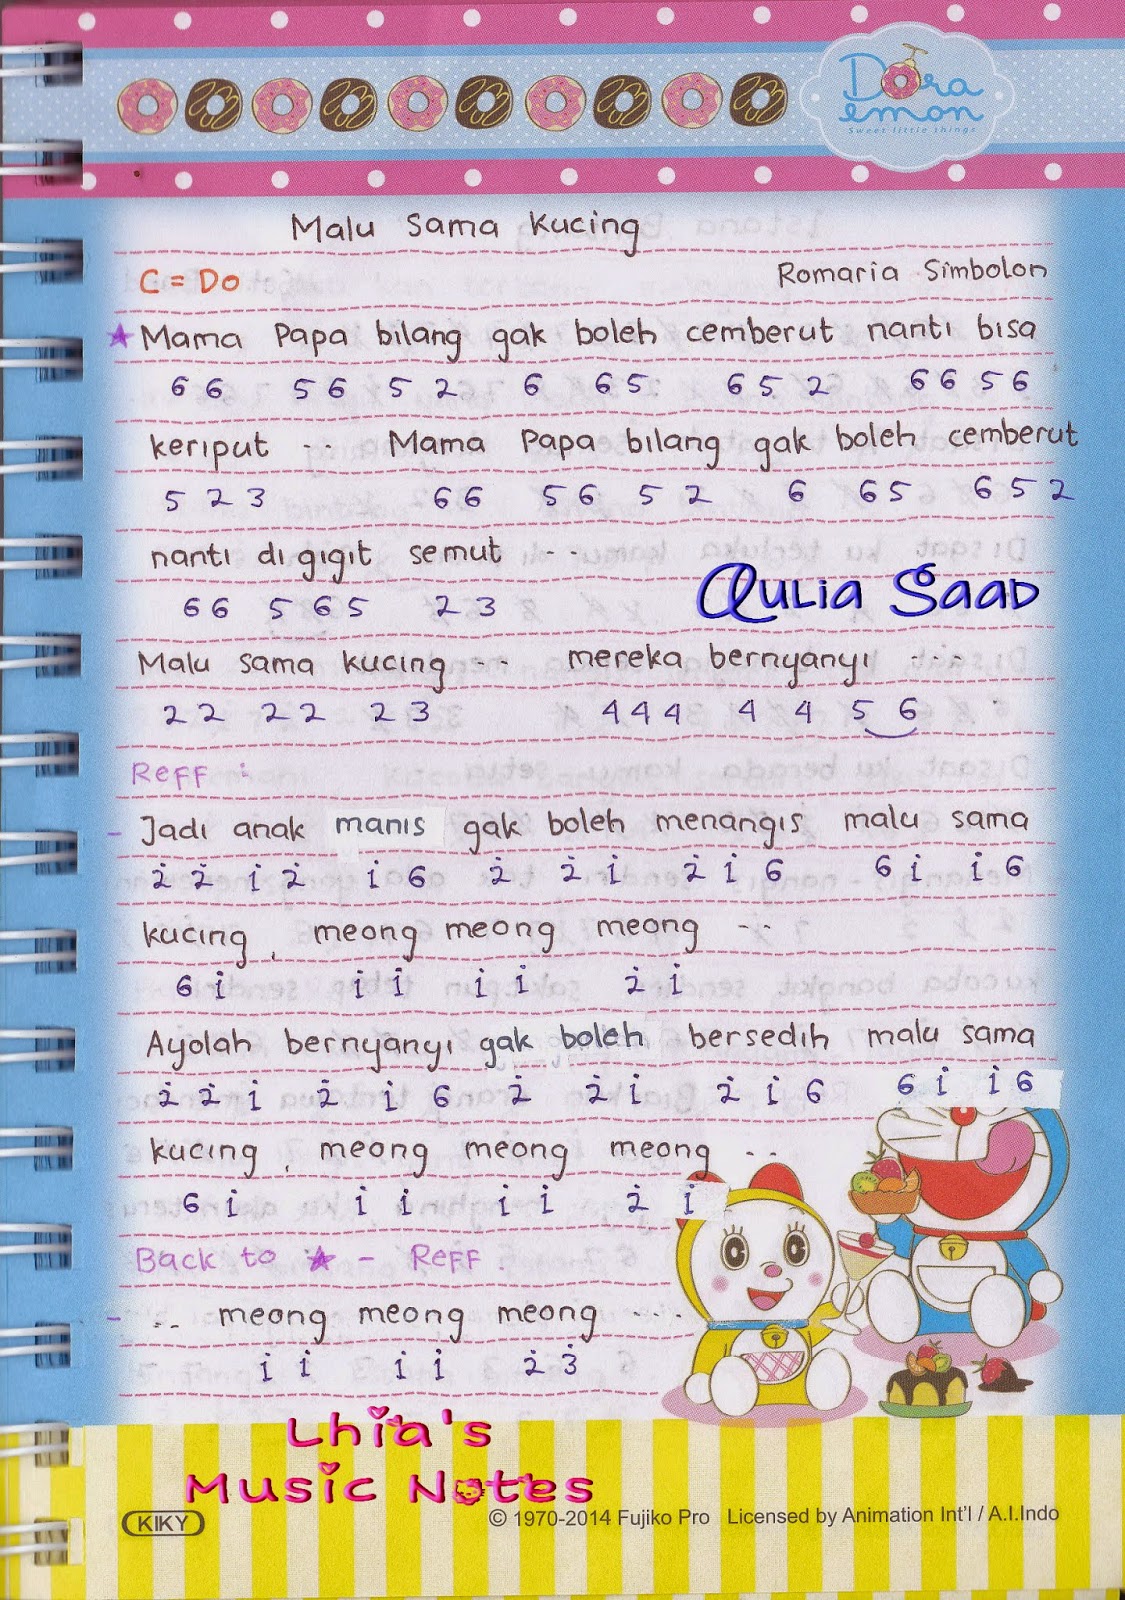 Dora
emon
Sweet little things
Malu Sama Kucing
C = Do Romaria Simbolon
★ Mama Papa bilang gak boleh cemberut nanti bisa
6 6 5 6 5 2 6 6 5 6 5 2 6 6 5 6
keriput -- Mama Papa bilang gak boleh cemberut
5 2 3 6 6 5 6 5 2 6 6 5 6 5 2
nanti di gigit semut ---
6 6 5 6 5 2 3
Qulia Saad
Malu sama kucing --- mereka bernyanyi ---
2 2 2 2 2 3 4 4 4 4 4 5 6
Reff :
- Jadi anak manis gak boleh menangis malu sama
2̇ 2̇ 1̇ 2̇ 1̇ 6 2̇ 2̇ 1̇ 2̇ 1̇ 6 6 1̇ 1̇ 6
kucing, meong meong meong ---
6 1̇ 1̇ 1̇ 1̇ 1̇ 2̇ 1̇
Ayolah bernyanyi gak boleh bersedih malu sama
2̇ 2̇ 1̇ 2̇ 1̇ 6 2̇ 2̇ 1̇ 2̇ 1̇ 6 6 1̇ 1̇ 6
kucing, meong meong meong --
6 1̇ 1̇ 1̇ 1̇ 1̇ 2̇ 1̇
Back to ★ - Reff.
- .. meong meong meong ----
1̇ 1̇ 1̇ 1̇ 2̇ 3̇
Lhia's
Music Notes
KIKY © 1970-2014 Fujiko Pro Licensed by Animation Int'l / A.I.Indo